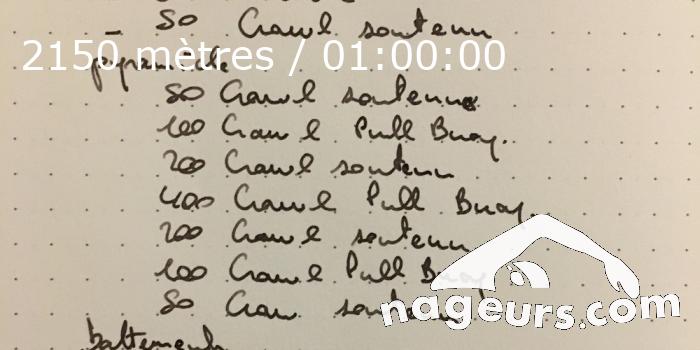 - 50 Crawl soutenu
2150 mètres / 01:00:00
pyramide
50 Crawl soutenu
100 Crawl Pull Buoy.
200 Crawl soutenu
400 Crawl Pull Buoy.
200 Crawl soutenu
100 Crawl Pull Buoy
50 Craw soutenu
nageurs.com
battements